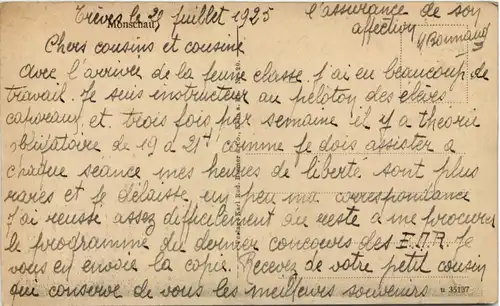 Trèves le 29 juillet 1925
Monschau
l'assurance de son
affection
Chers cousins et cousine
avec l'arrivée de la jeune classe j'ai eu beaucoup de
travail. Je suis instructeur au peloton des élèves
caporaux et trois fois par semaine il y a théorie
obligatoire de 19 à 21h comme je dois assister a
chaque séance mes heures de liberté sont plus
rares et je délaisse un peu ma correspondance
J'ai reussi assez difficilement du reste a me procurer
le programme du dernier concours des E.M.R. Je
vous en envoie la copie. Recevez de votre petit cousin
qui conserve de vous les meilleurs souvenirs
u 35137